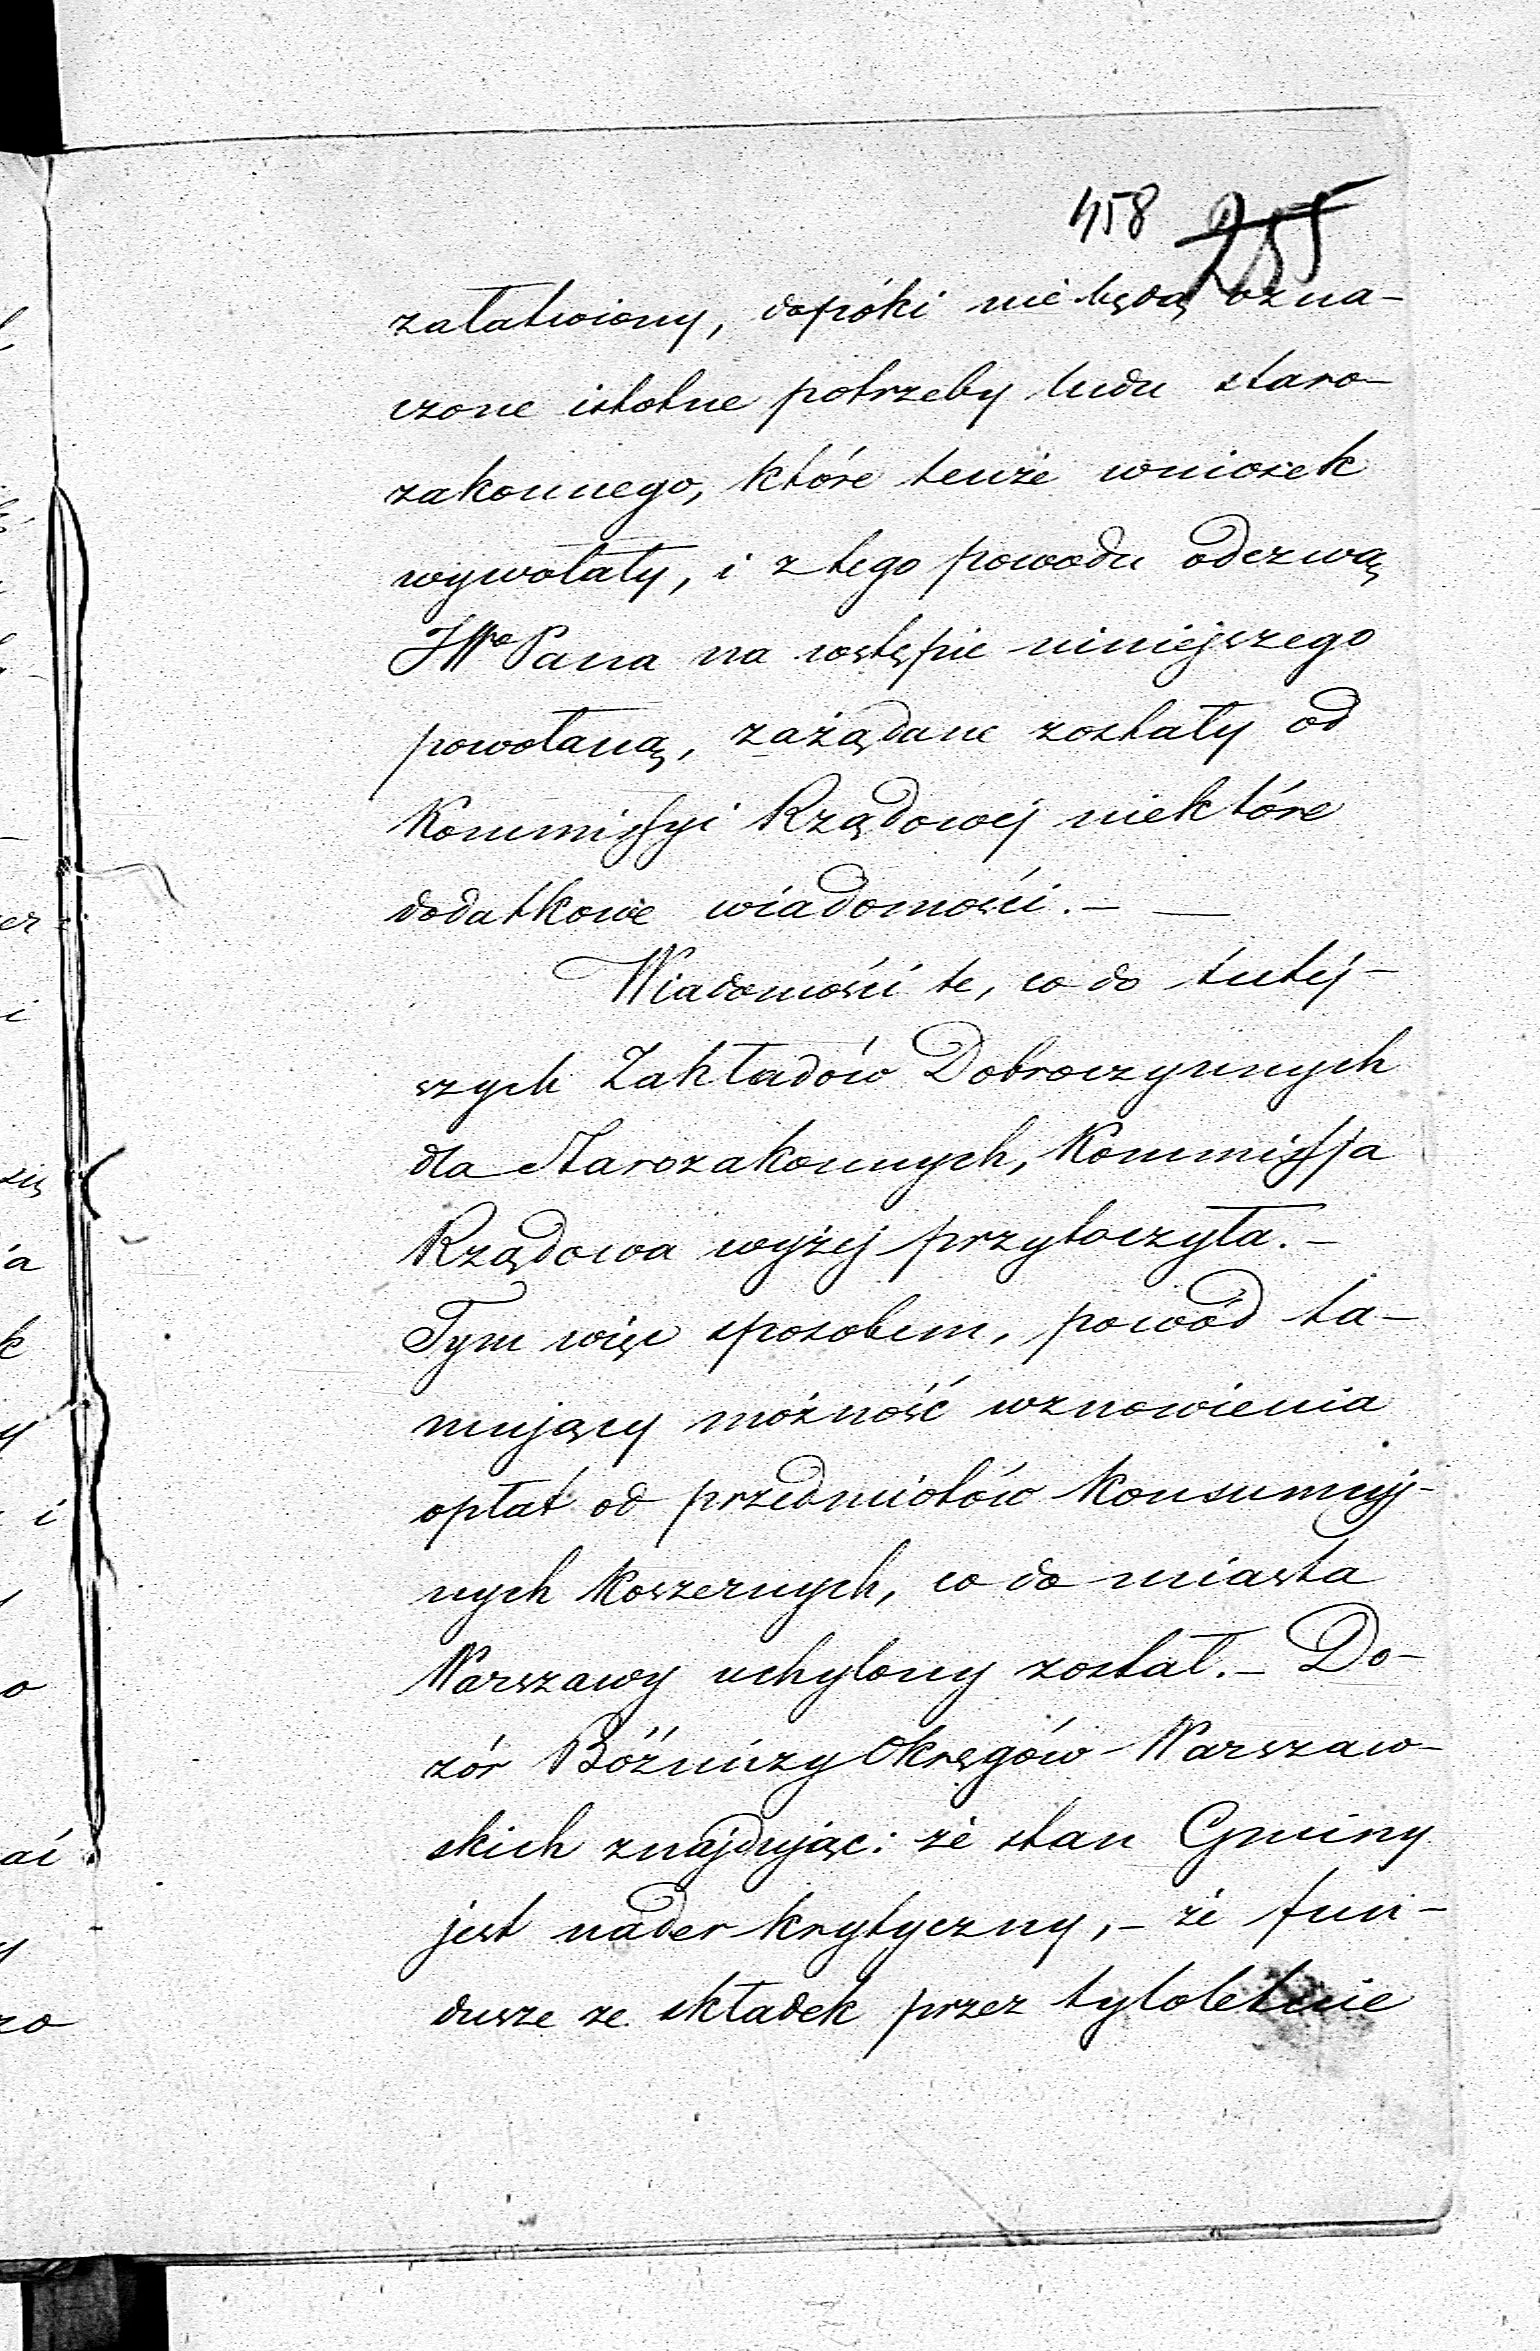 458 255
załatwiony, dopóki nie będą ozna-
czone istotne potrzeby ludu staro-
zakonnego, które tenże wniosek
wywołały, i z tego powodu odezwą
JWo Pana na wstępie niniejszego
powołaną, zażądane zostały od
Kommissyi Rządowej niektóre
dodatkowe wiadomości. — —
Wiadomości te, co do tutej-
szych Zakładów Dobroczynnych
dla Starozakonnych, Kommissja
Rządowa wyżej przytoczyła. —
Tym więc sposobem, powód ta-
mujący możność wznowienia
opłat od przedmiotów konsumcyj-
nych koszernych, co do miasta
Warszawy uchylony został. — Do-
zór Bóżniczy Okręgów Warszaw-
skich znajdując: że stan Gminy
jest nader krytyczny, — że fun-
dusze ze składek przez tyloletnie